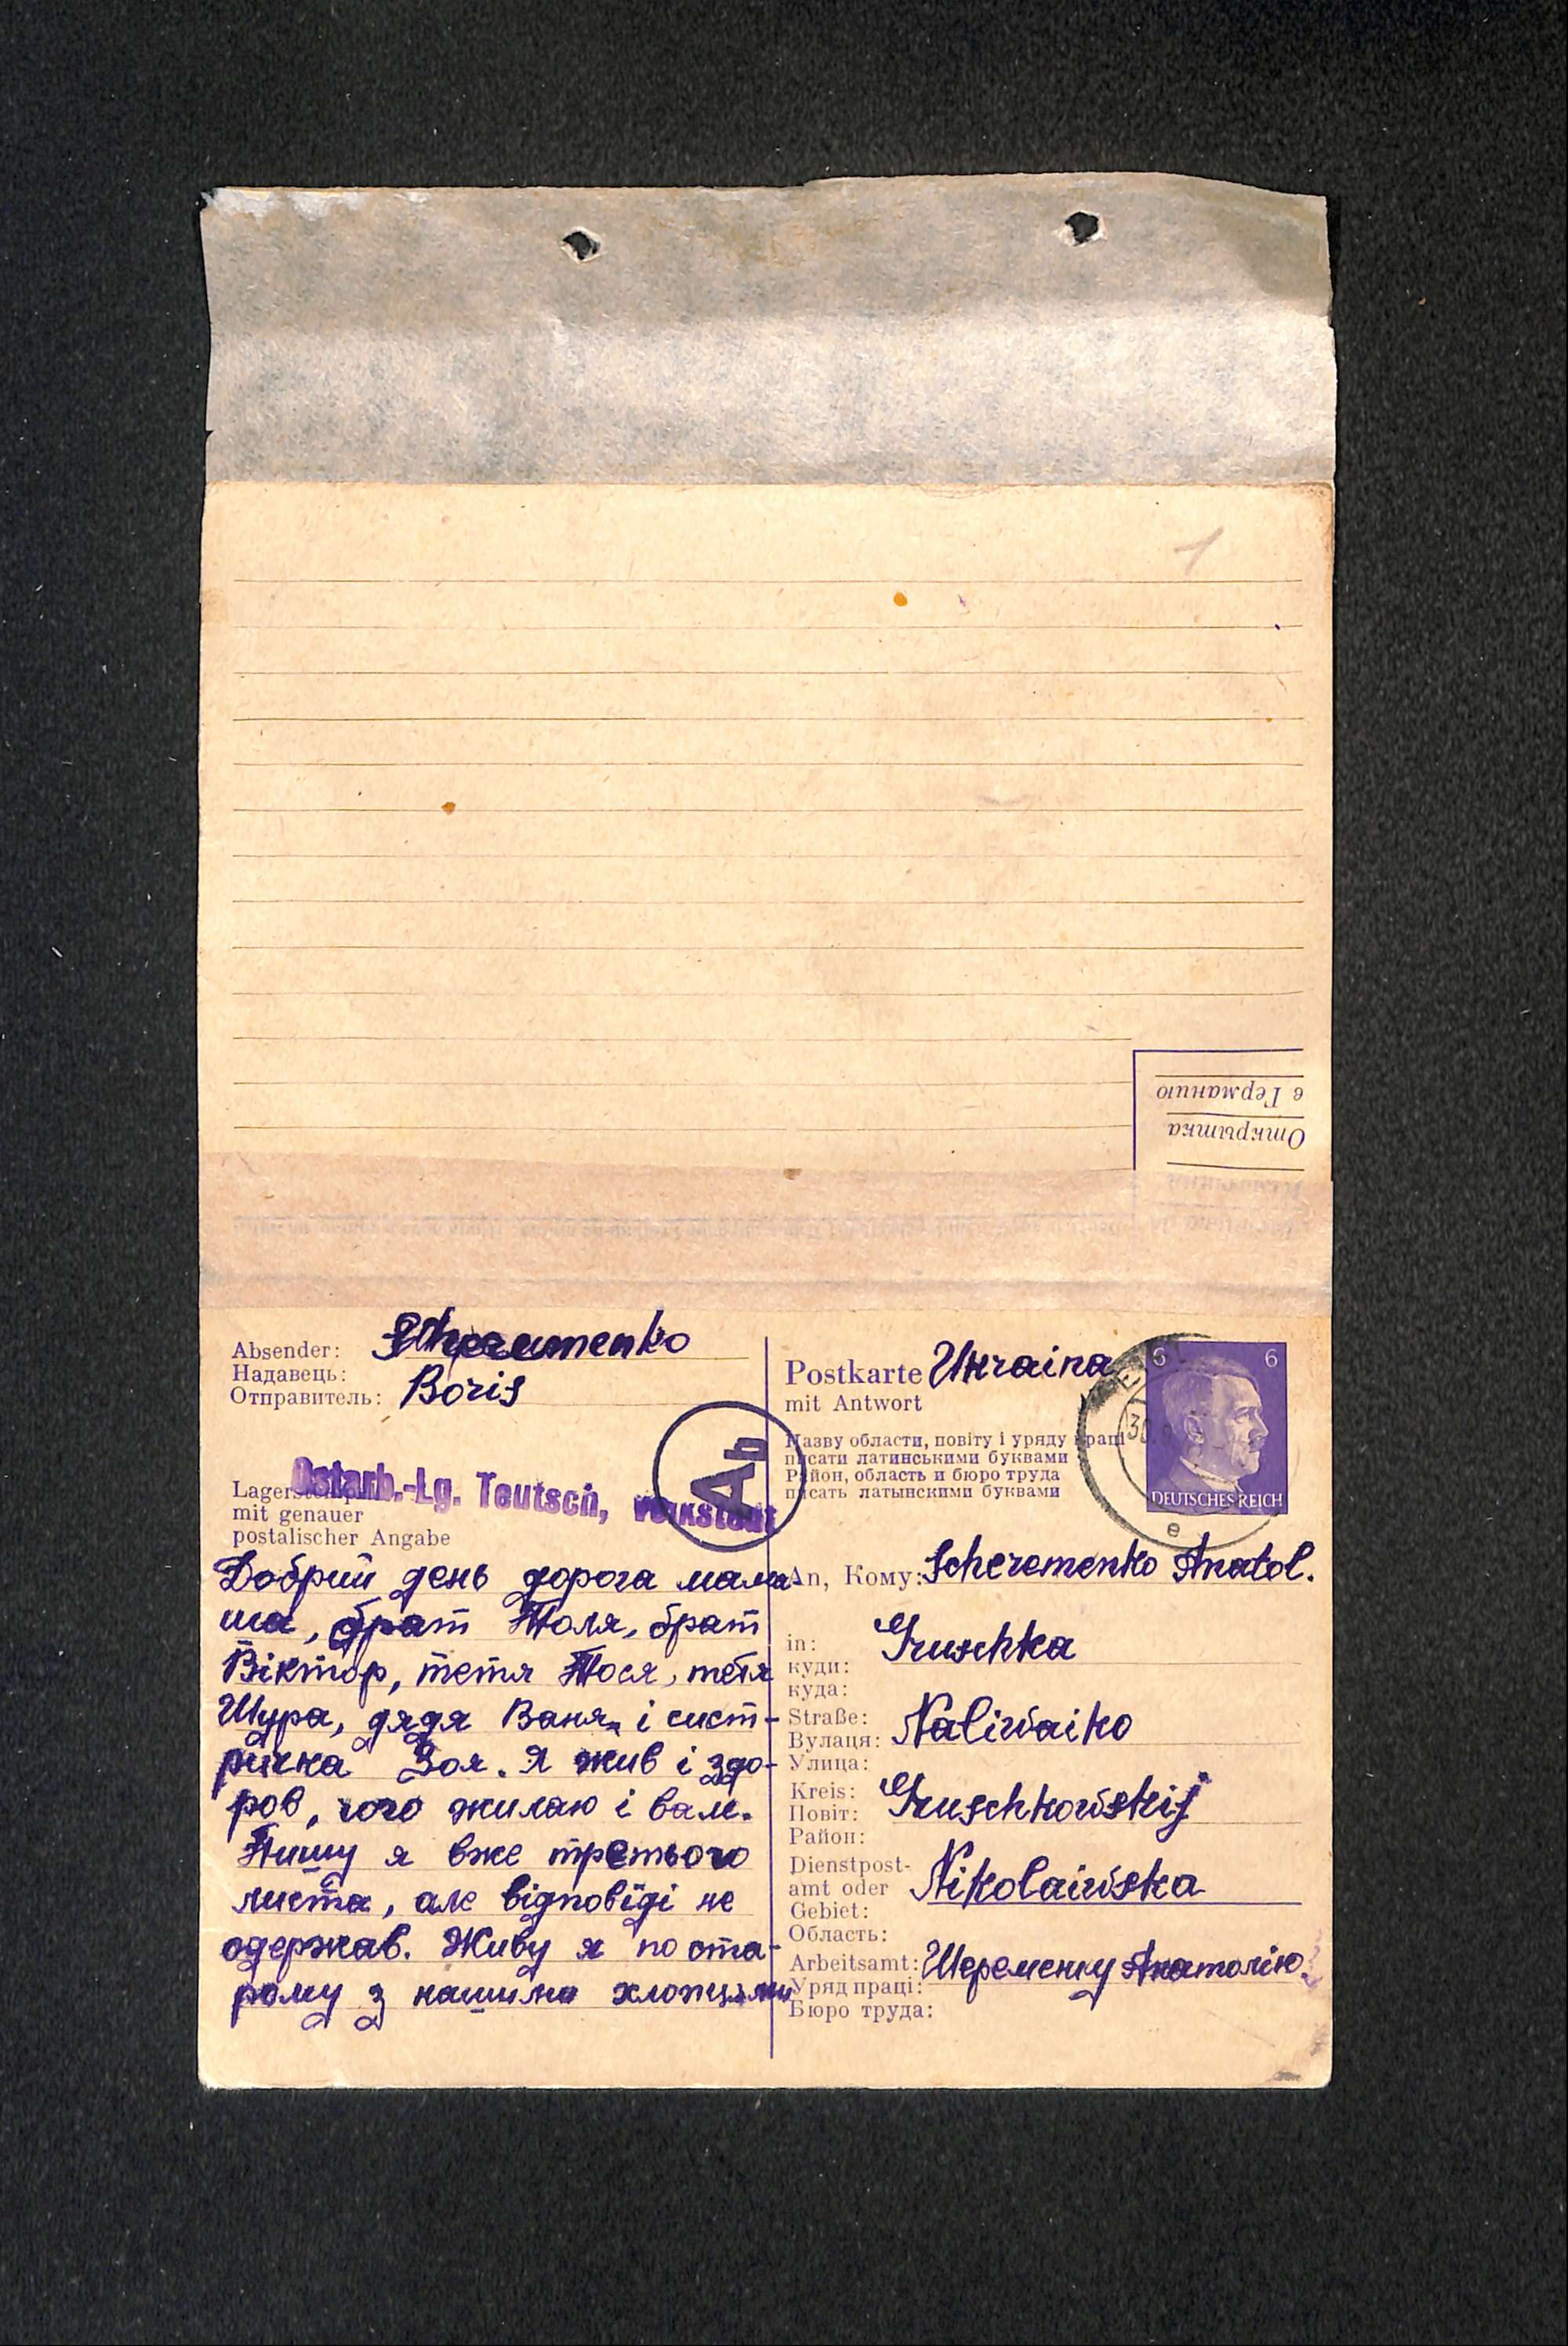 1
в Германию
Открытка
Absender: Scheremenko
Надавець:
Отправитель: Boris
Ostarb.-Lg. Teutsch, Volkstedt
Ab
mit genauer
postalischer Angabe
Добрий день дорога мама-
ша, брат Толя, брат
Віктор, тетя Тося, тетя
Шура, дядя Ваня, і сист-
ричка Зоя. Я жив і здо-
ров, чого жилаю і вам.
Пишу я вже третього
листа, але відповіді не
одержав. Живу я по ста-
рому з нашими хлопцями
Postkarte Ukraina
mit Antwort
Назву области, повіту і уряду праці
писати латинськими буквами
Район, область и бюро труда
писать латынскими буквами
6 6
DEUTSCHES REICH
e
An, Кому: Scheremenko Anatol.
in: Gruschka
куди:
куда:
Straße: Naliwaiko
Вулаця:
Улица:
Kreis: Gruschkowskij
Повіт:
Район:
Dienstpost-
amt oder Nikolaiwska
Gebiet:
Область:
Arbeitsamt: Шеременку Анатолію.
Уряд праці:
Бюро труда: